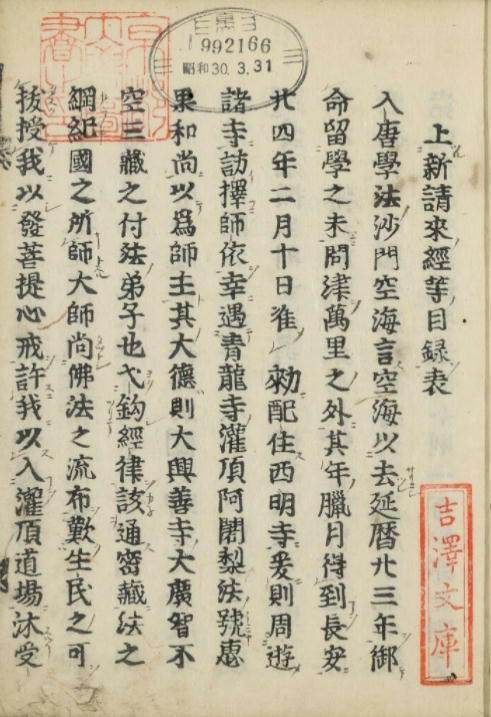 上新請來經等目録表
入唐學法沙門空海言空海以去延暦廿三年御
命留學之末問津萬里之外其年臘月得到長安
廿四年二月十日准　勅配住西明寺爰則周遊
諸寺訪擇師依幸遇青龍寺灌頂阿闍梨法號惠
果和尚以爲師主其大德則大興善寺大廣智不
空三藏之付法弟子也弋鈎經律該通密藏法之
綱紀國之所師大師尚佛法之流布歎生民之可
拔授我以發菩提心戒許我以入灌頂道場沐受
992166
昭和30.3.31
吉澤文庫